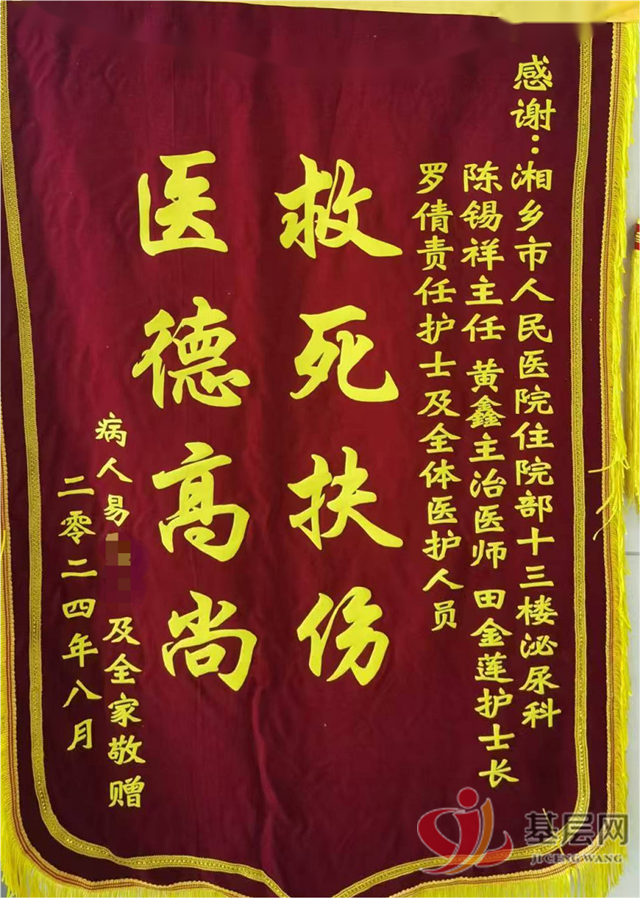 感谢：湘乡市人民医院住院部十三楼泌尿科
陈锡祥主任 黄鑫主治医师 田金莲护士长
罗倩责任护士及全体医护人员
救死扶伤
医德高尚
病人易 及全家敬赠
二零二四年八月
基层网
JICENGWANG